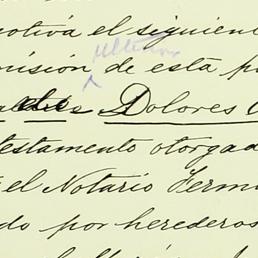 motivá el siguiente
ulterior
misión de esta p
Dolores
testamento otorgad
el Notario Fermí
do por herederos